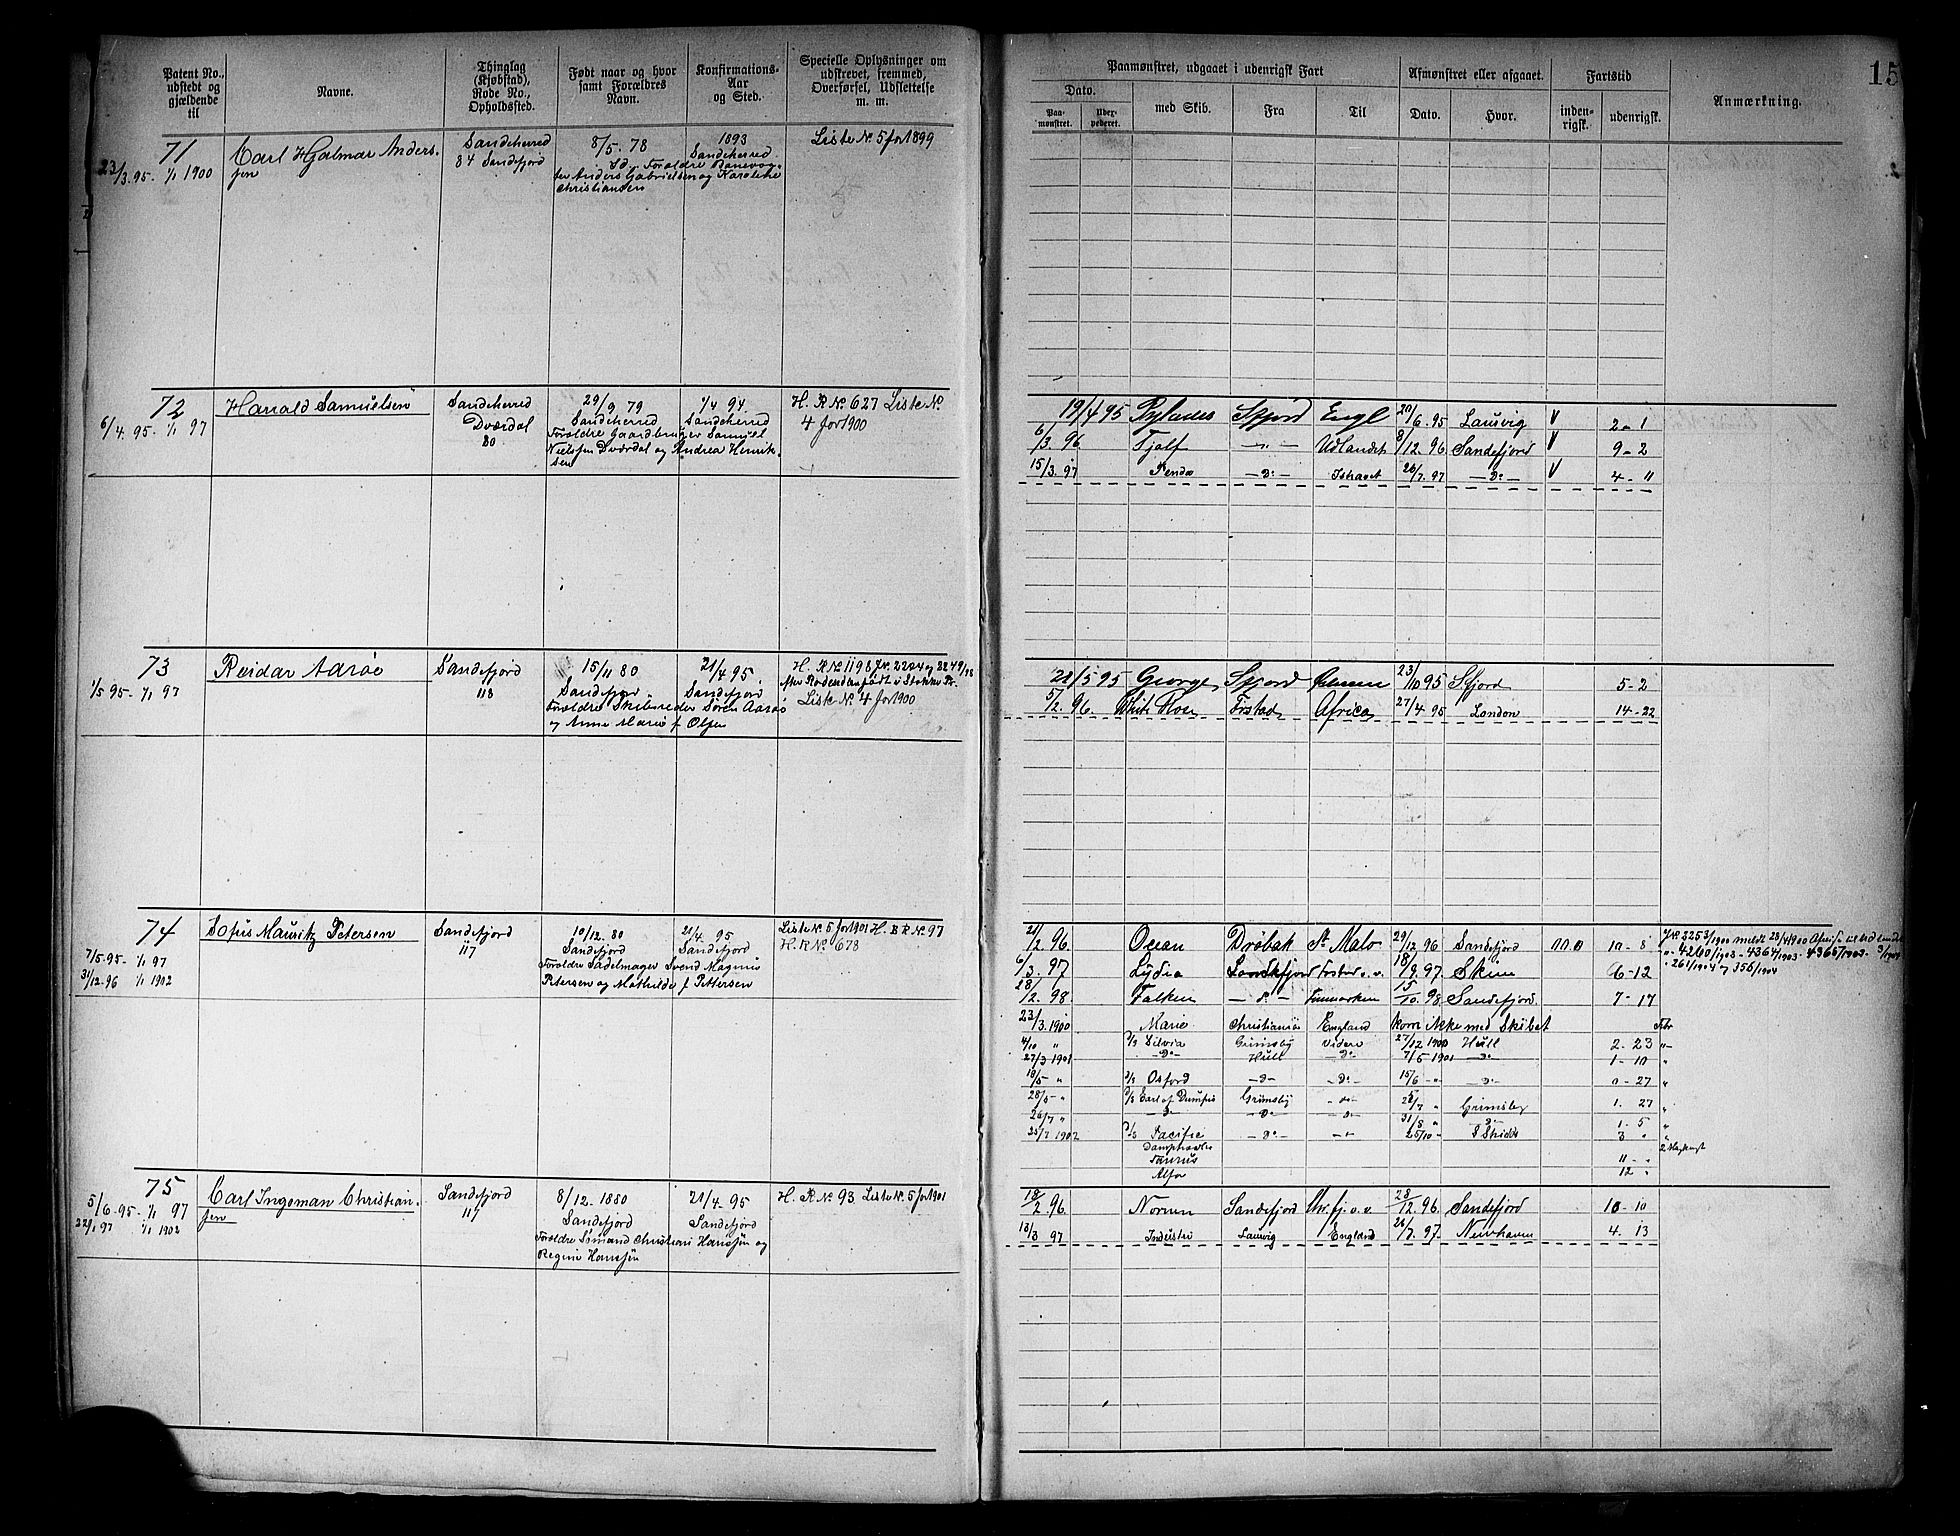 Patent No., udstedt og gjældende til
Navne.
Thinglag (Kjøbstad), Rode No., Opholdssted.
Født naar og hvor samt Forældres Navn.
Konfirmations- Aar og Sted.
Specielle Oplysninger om udskrevet, fremmed, Overførsel, Udslettelse m. m.
71
23/3.95. 1/1 1900
Carl Hjalmar Anders-
sen
Sandeherred
84 Sandefjord
8/5. 78
Sd. Forældre Banevog-
ter Anders Gabrielsen og Karoline
Christiansen
1893
Sandeherred
Liste No. 5 for 1899
72
6/4. 95. 1/1 97
Harald Samuelsen
Sandeherred
Dværdal
80
29/9 79
Sandeherred
Forældre Gaardbruger Samuel
Nielssen Dværdal og Andrea Henrik-
sen
1/4 94
Sandeherred
H. R No. 627 Liste No.
4 for 1900
73
1/5 95. 1/1 97
Reidar Aarøe
Sandefjord
118
15/11 80
Sandefjord
Forældre Skibsreder Søren Aarøe
og Anne Marie f Olsen
21/4 95
Sandefjord
H. R No. 1198 Jr. 2204 og 2249/98
Liste No. 4 for 1900
74
7/5.95. 1/1 97
31/12.96 1/1 1902
Sofus Mauritz Petersen
Sandefjord
117
10/12. 80
Sandefjord
Forældre Sadelmager Svend Magnus
Petersen og Mathilde f Pettersen
21/4. 95
Sandefjord
Liste No. 5 for 1901 H. B R No. 97
H. R No. 678
75
5/6.95. 1/1 97
22/1 97 1/1 1902
Carl Ingeman Christian-
sen
Sandefjord
117
8/12. 1880
Sandefjord
Forældre Sømand Christian Hanssen og
Regine Hanssen
21/4. 95
Sandefjord
H. R No. 93 Liste No. 5 for 1901
15
Paamønstret, udgaaet i udenrigsk Fart
Afmønstret eller afgaaet.
Fartstid
Anmærkning.
Dato.
Paa- mønstret.
Uder- pederet.
med Skib.
Fra
Til
Dato.
Hvor.
inden- rigsk.
udenrigsk.
19/4 95 Sfjord Engl 20/6.95 Laurvig V 2-1
6/3. 96 Tjalf -"- Udlandet 8/12. 96 Sandefjord V 9-2
15/3. 97 -Do- Ishavet 26/7. 97 -Do- V 4-"
22/5 95 George Sfjord 23/10 95 Sfjord 5-2
5/2. 96. White Rose Frstad Africa 27/4. 95 London 14-22
21/2. 96. Ocean Drøbak St Malo 29/12. 96 Sandefjord 10-8
6/3. 97 Lydia 18/9. 97. Skien 6-12
28/2. 98. Falken -Do- Finmarken 15/10. 98 Sandefjord 7-17
23/3. 1900 Marie Christiania England kom ikke med Skibet
4/10 " D/S Silvia Grimsby Videre 27/12 1900 Hull 2-23
27/3 1901 -Do- Hull -Do- 7/5 1901 -Do- 1-10
18/5 " D/S Oxford -Do- -Do- 15/6 -"- -Do- 0-27
28/5 " D/S Grimsby -Do- 25/7 " Grimsby 1. 27
26/7 " -Do- -Do- -Do- 31/8 " -Do- 1. 5
25/7 1902 D/S Pacific -Do- 25/10 3 "
Taurus 11 - "
Alfa 12 - "
18/2. 96 Sandefjord 28/12. 96 Sandefjord 10-10
18/3 97 Laurvig England 26/7. 97. Newhaven 4. 13